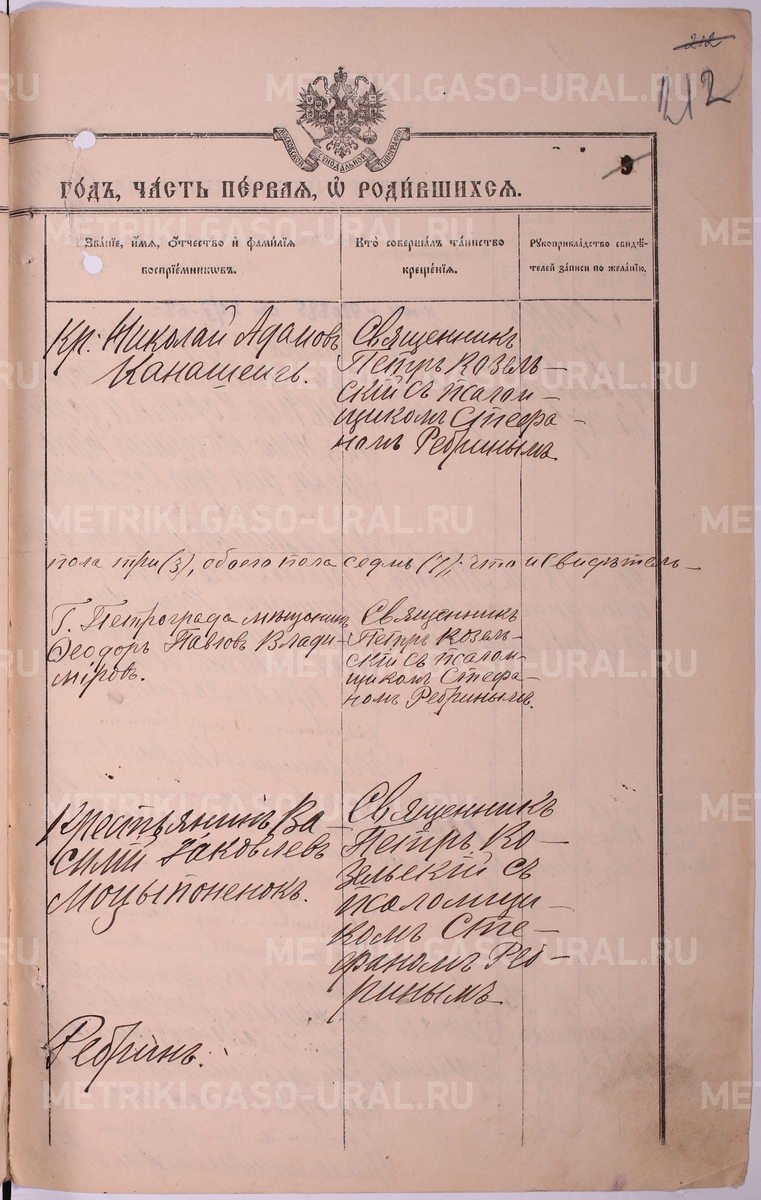 212
212
9
МОСКОВСКОЙ СѴНОДАЛЬНОЙ ТИПОГРАФІИ
ГО́ДЪ, ЧА́СТЬ ПЕ́РВАЯ, Ѡ҆ РОДИ́ВШИХСЯ.
Зва́нїе, и҆́мя, ѻ҆́тчество и҆ фами́лїя
воспрїе́мникѡвъ.
Кто̀ соверша́лъ та́инство
креще́нїя.
Рꙋкоприкла́дство свидѣ́-
телей за́писи по жела́нїю.
Кр. Николай Адамовъ
Канашенъ.
Священникъ
Петръ Козель-
скій съ псалом-
щикомъ Стефа-
номъ Ребринымъ
пола три (3), обоего пола седмь (7); что и свидѣтель-
Г. Петрограда мѣщанинъ
Ѳеодоръ Павловъ Влади-
міровъ.
Священникъ
Петръ Козель-
скій съ псалом-
щикомъ Стефа-
номъ Ребринымъ.
Крестьянинъ Ва-
силій Іаковлевъ
Моцыпоненокъ.
Священникъ
Петръ Ко-
зельскій съ
псаломщи-
комъ Сте-
фаномъ Реб-
ринымъ
Ребринъ.
METRIKI.GASO-URAL.RU